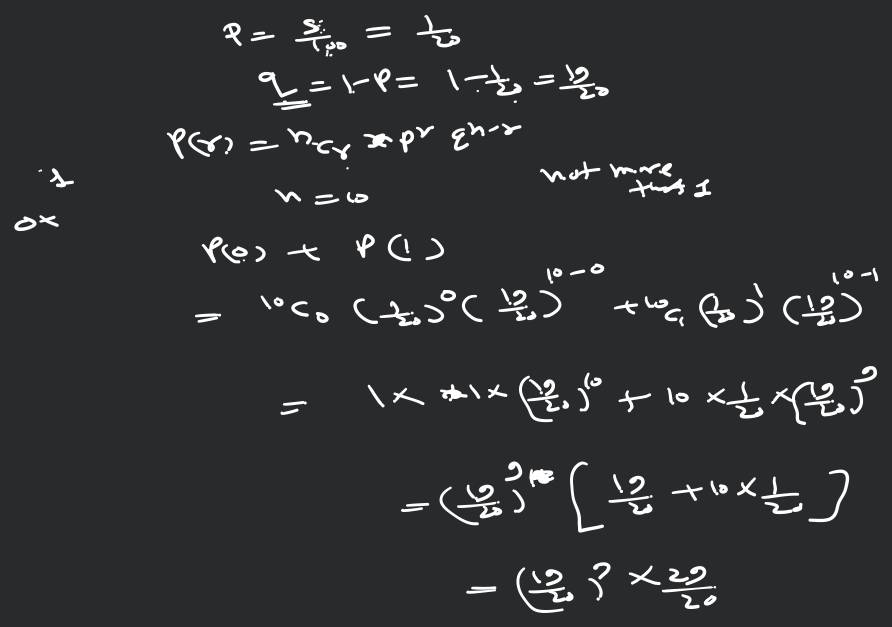 P = 5/100 = 1/20
q = 1-P = 1-1/20 = 19/20
P(r) = nCr * p^r q^n-r
not more than 1
1
0x
n = 10
P(0) + P(1)
= 10C0 (1/20)^0 (19/20)^10-0 + 10C1 (1/20)^1 (19/20)^10-1
= 1 × 1 × (19/20)^10 + 10 × 1/20 × (19/20)^9
= (19/20)^9 [19/20 + 10 × 1/20]
= (19/20)^9 × 29/20